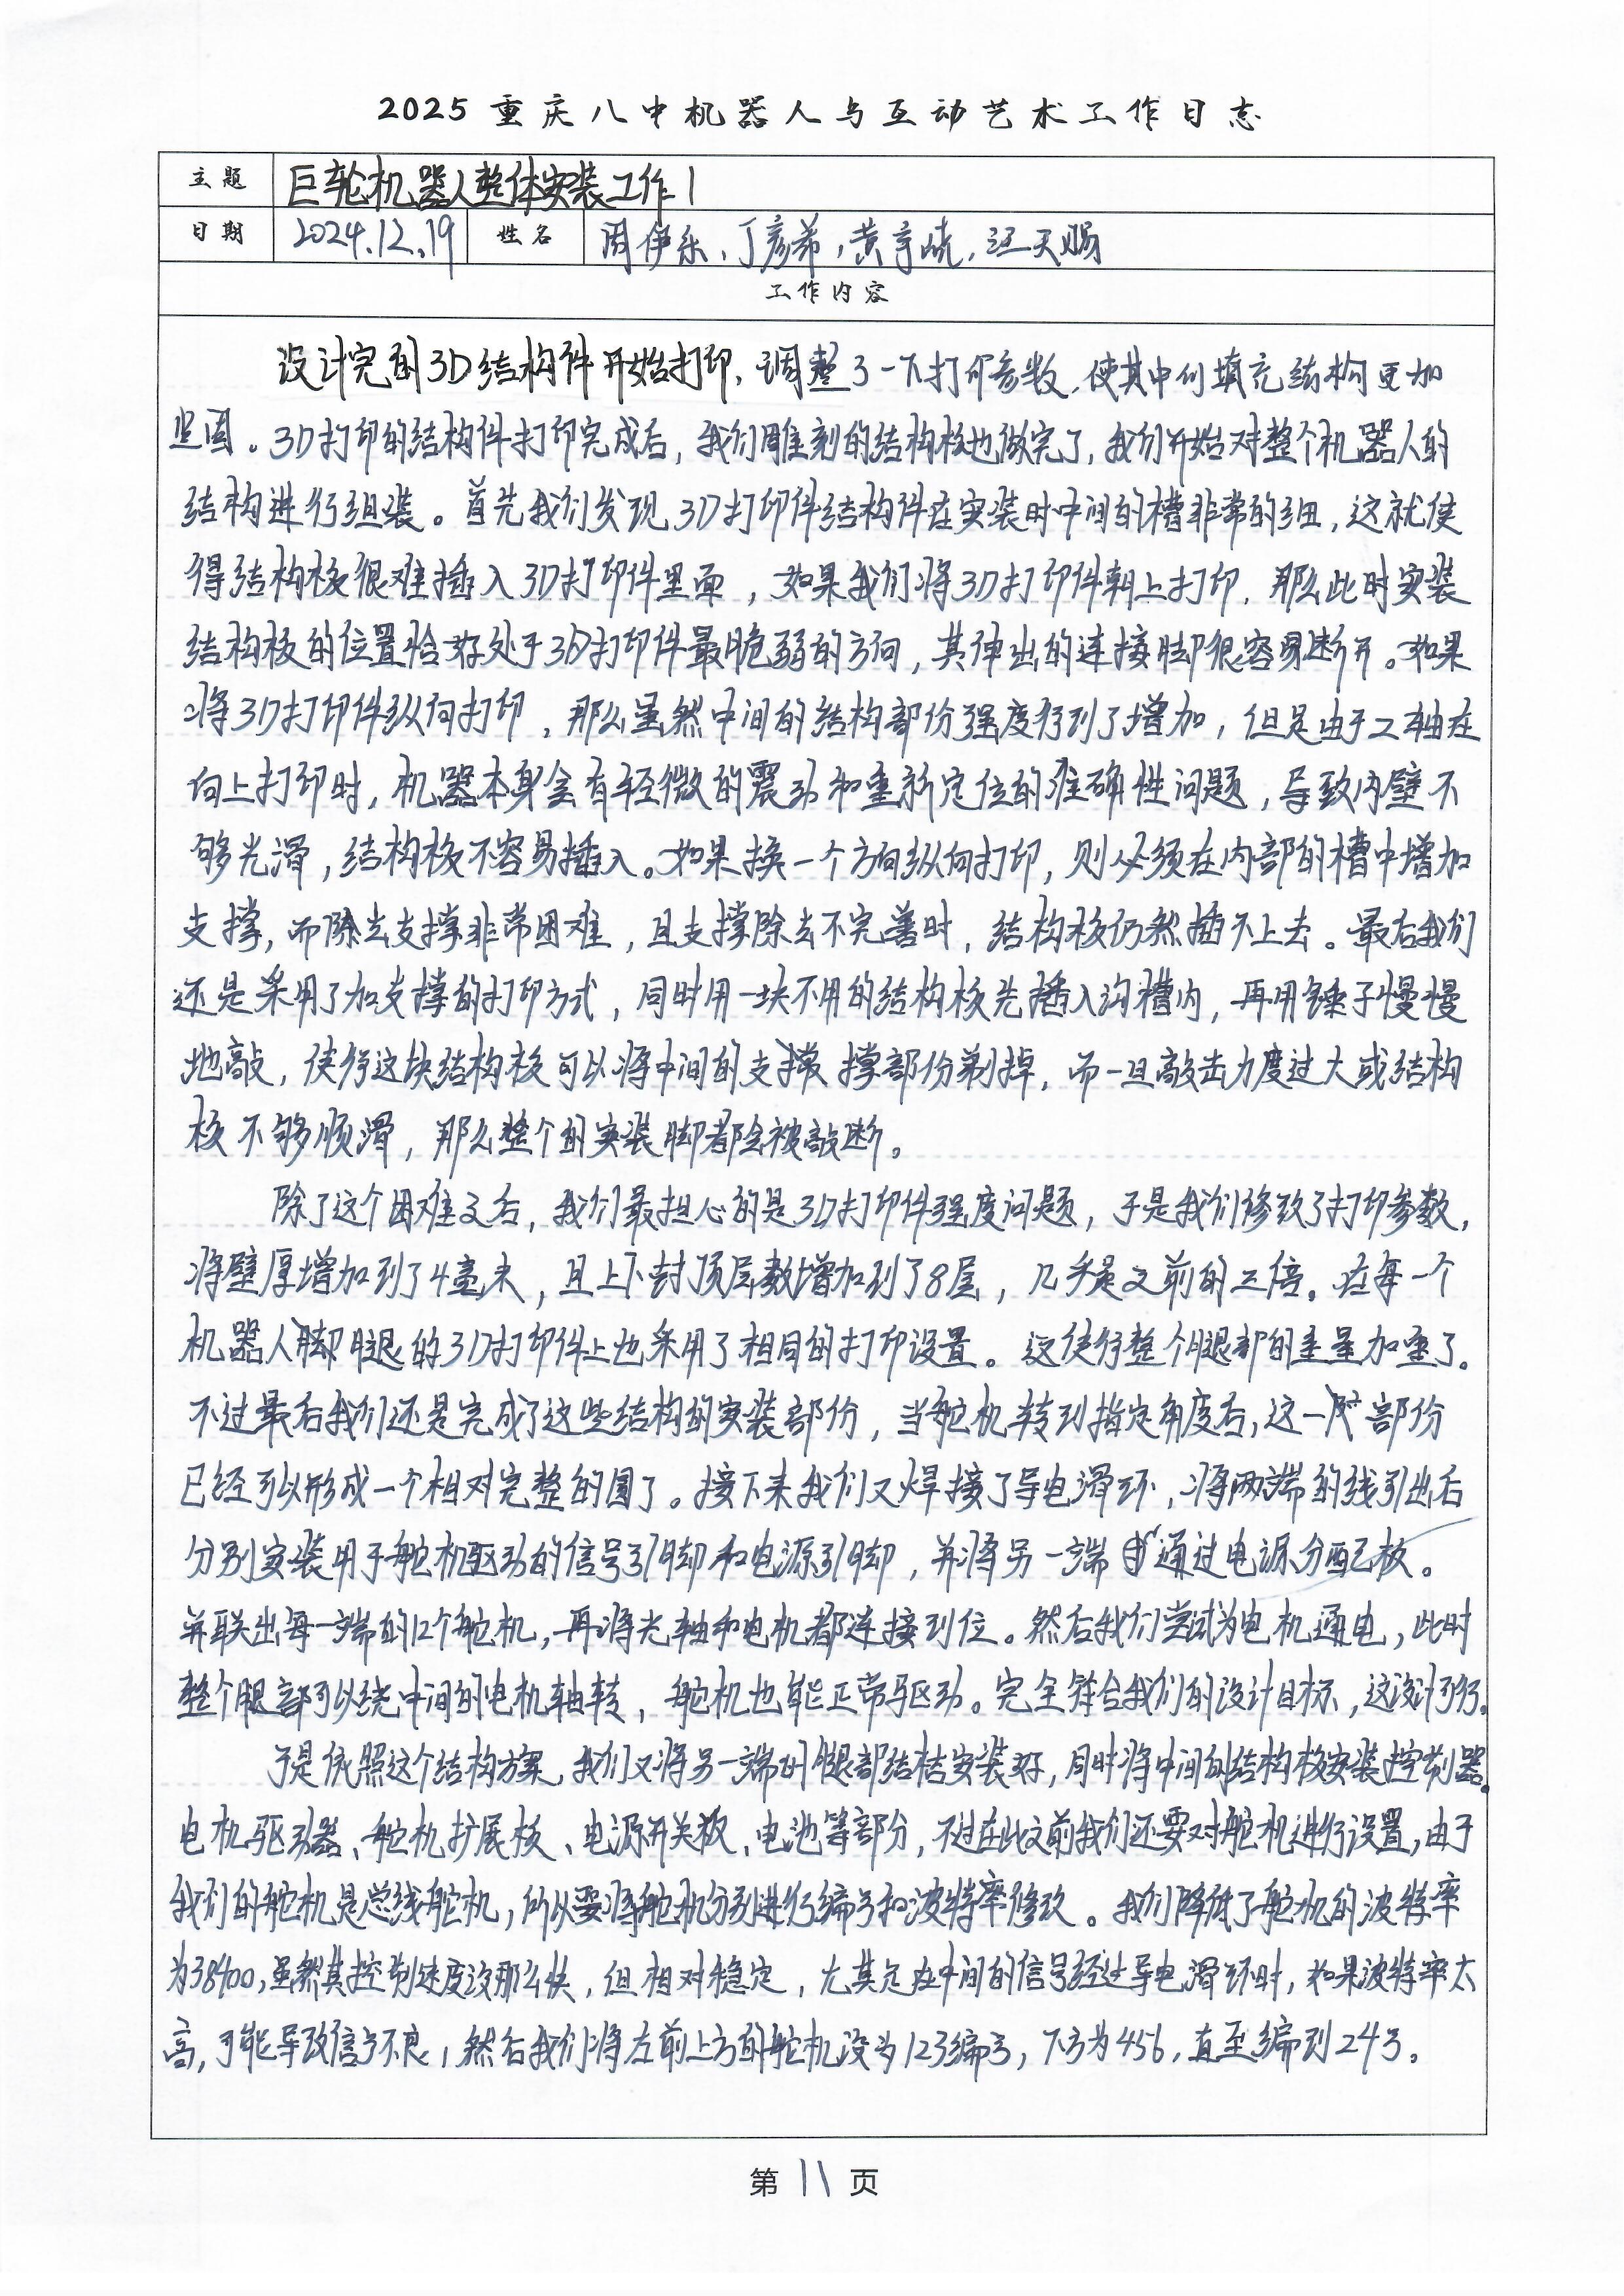 2025重庆八中机器人与互动艺术工作日志
主题 巨轮机器人整体安装工作1
日期 2024.12.19 姓名 周伊乐、丁彦希,黄宇皓,汪天赐
工作内容
设计完的3D结构件开始打印,调整了一下打印参数,使其中的填充结构更加
坚固。3D打印的结构件打印完成后,我们雕刻的结构板也做完了,我们开始对整个机器人的
结构进行组装。首先我们发现3D打印件结构件在安装时中间的槽非常的细,这就使
得结构板很难插入3D打印件里面,如果我们将3D打印件朝上打印,那么此时安装
结构板的位置恰好处于3D打印件最脆弱的方向,其伸出的连接脚很容易断开。如果
将3D打印件纵向打印,那么虽然中间的结构部份强度得到了增加,但是由于Z轴在
向上打印时,机器本身会有轻微的震动和重新定位的准确性问题,导致内壁不
够光滑,结构板不容易插入。如果换一个方向纵向打印,则必须在内部的槽中增加
支撑,而除去支撑非常困难,且支撑除去不完善时,结构板仍然插不上去。最后我们
还是采用了加支撑的打印方式,同时用一块不用的结构板先插入沟槽内,再用锤子慢慢
地敲,使得这块结构板可以将中间的支撑 撑部份剃掉,而一旦敲击力度过大或结构
板不够顺滑,那么整个的安装脚都会被敲断。
除了这个困难之后,我们最担心的是3D打印件强度问题,于是我们修改了打印参数,
将壁厚增加到了4毫米,且上下封顶层数增加到了8层,几乎是之前的三倍。在每一个
机器人脚腿的3D打印件上也采用了相同的打印设置。这使得整个腿部的重量加重了。
不过最后我们还是完成了这些结构的安装部份,当舵机转到指定角度后,这一部份
已经可以形成一个相对完整的圆了。接下来我们又焊接了导电滑环,将两端的线引出后
分别安装用于舵机驱动的信号引脚和电源引脚,并将另一端通过电源分配板。
并联出每一端的12个舵机,再将光轴和电机都连接到位。然后我们尝试为电机通电,此时
整个腿部可以绕中间的电机轴转,舵机也能正常驱动。完全符合我们的设计目标,这设计可行。
于是依照这个结构方案,我们又将另一端的腿部结桔安装好,同时将中间的结构板安装控制器。
电机驱动器、舵机扩展板、电源开关板、电池等部分,不过在此之前我们还要对舵机进行设置,由于
我们的舵机是总线舵机,所以要将舵机分别进行编号和波特率修改。我们降低了舵机的波特率
为38400,虽然其控制速度没那么快,但相对稳定,尤其是在中间的信号经过导电滑环时,如果波特率太
高,可能导致信号不良,然后我们将左前上方的舵机设为123编号,下方为456,直至编到24号。
第11页